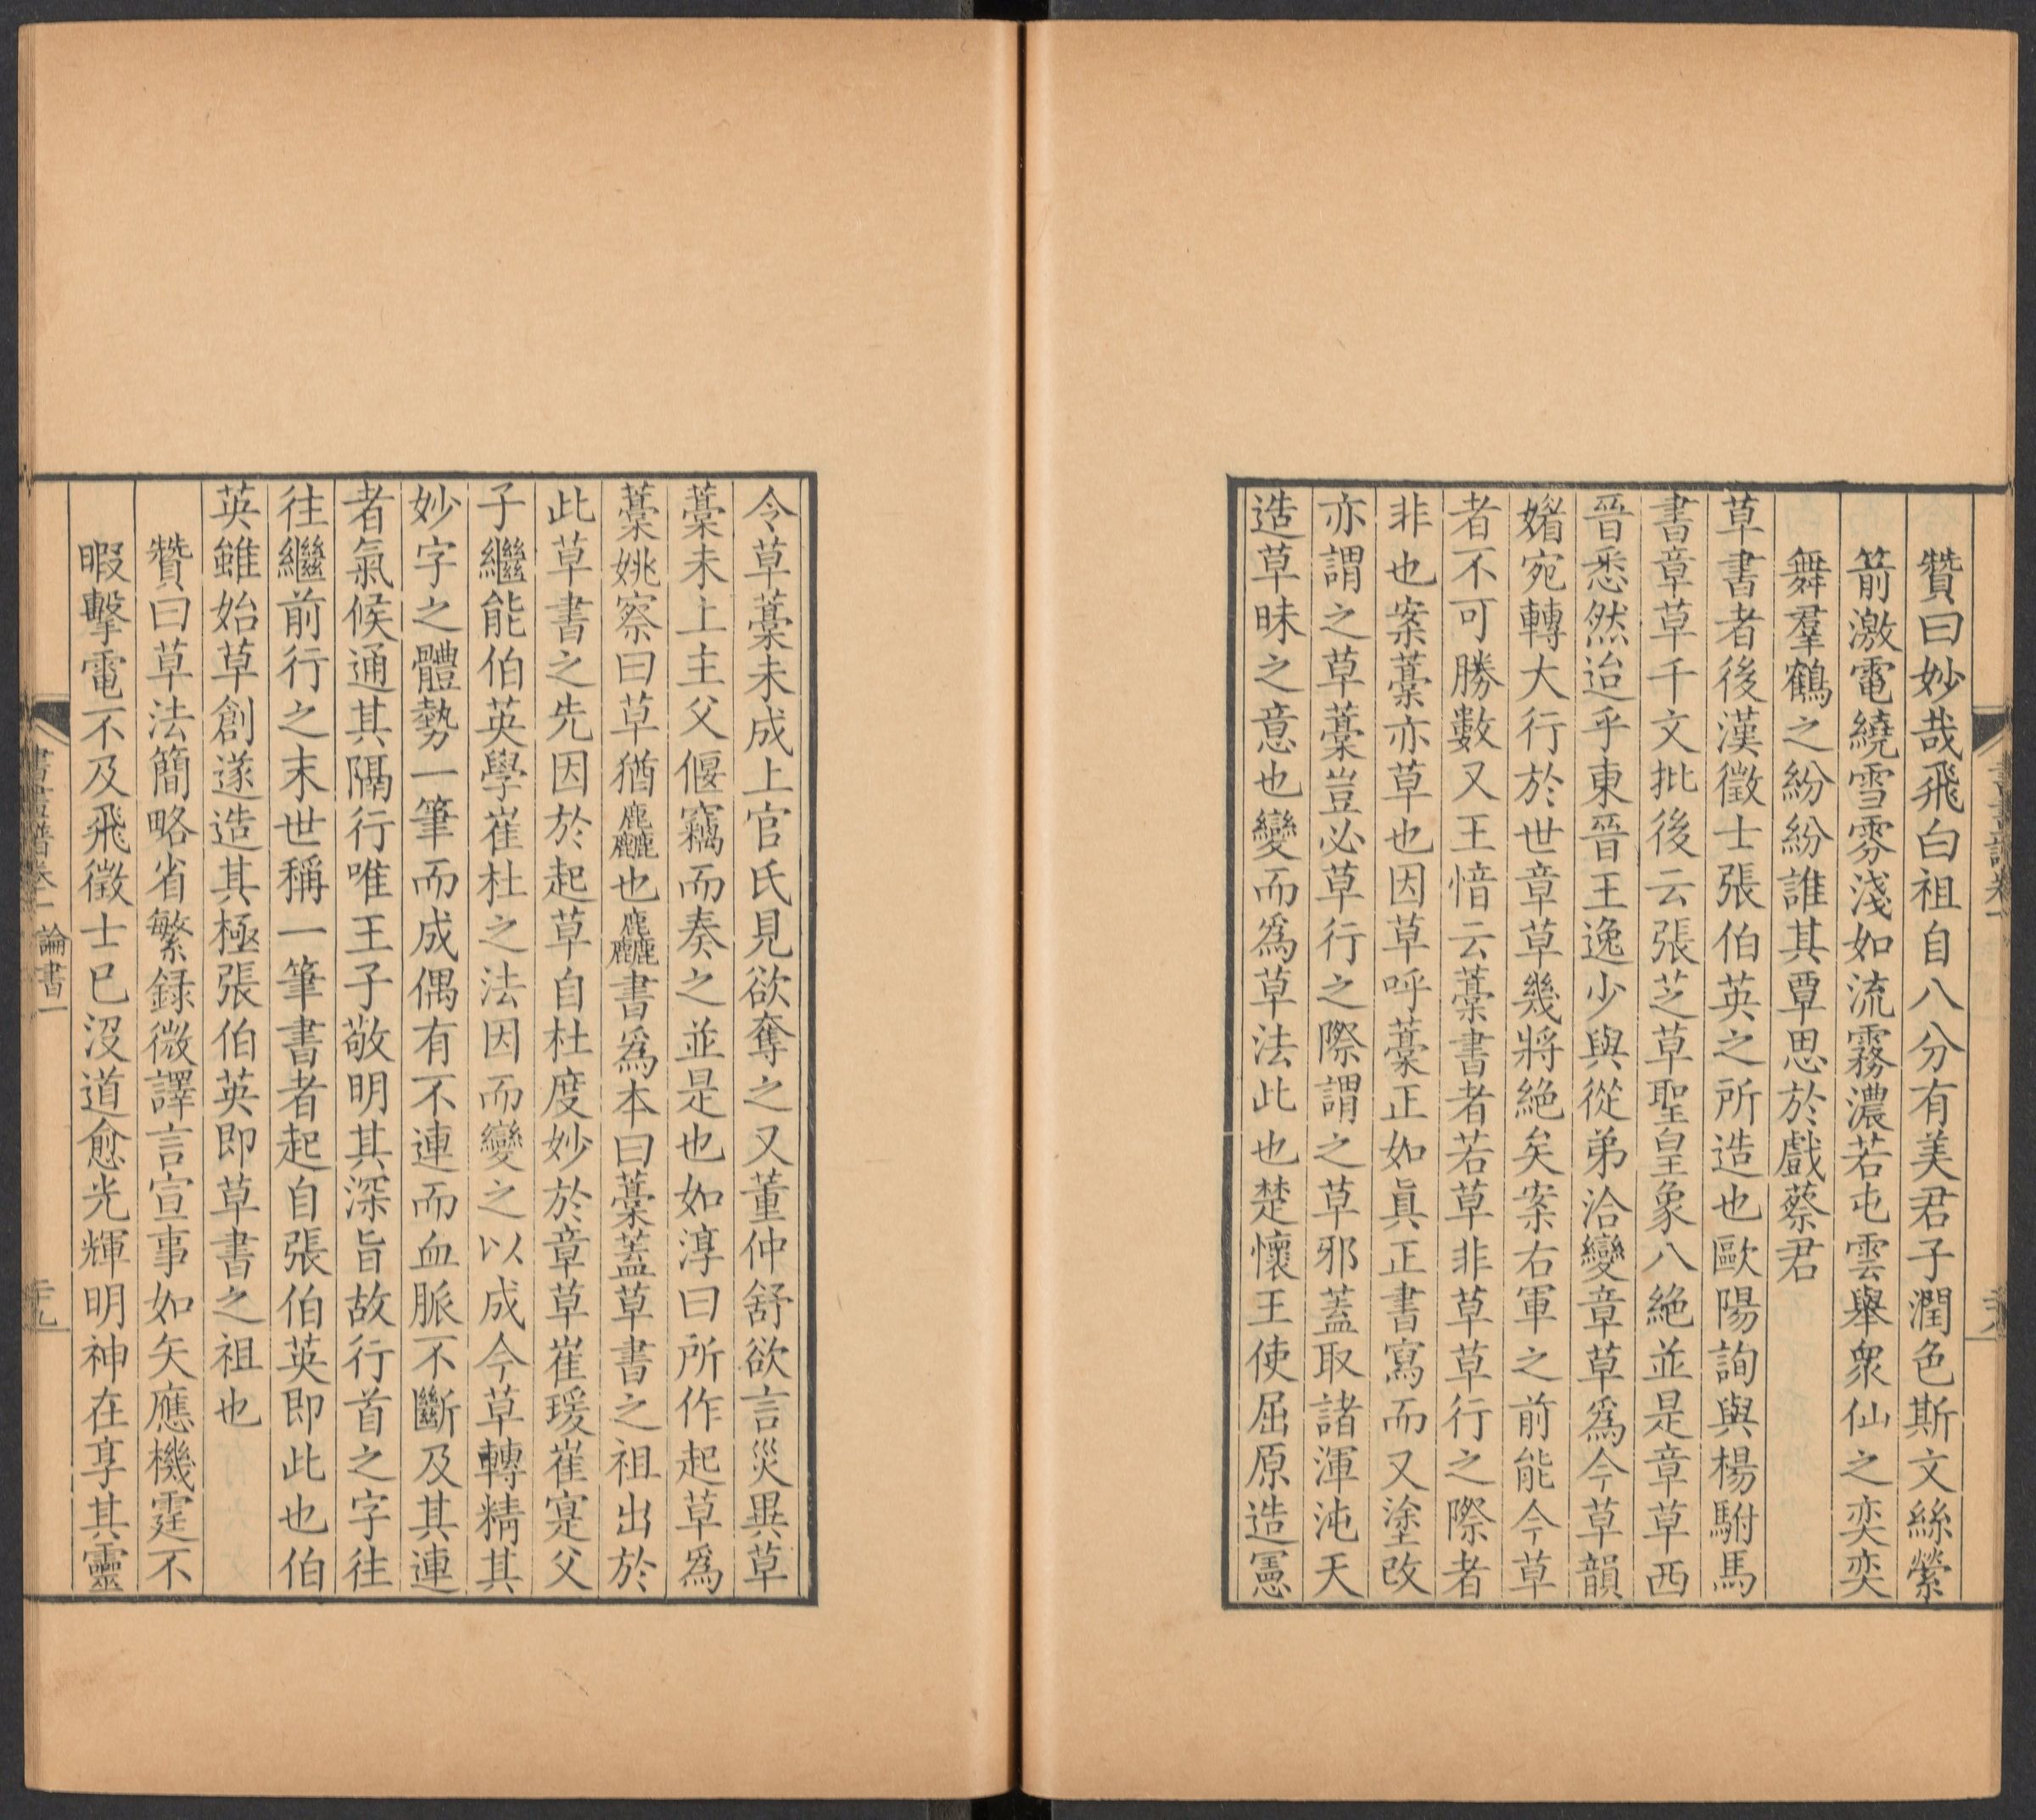 贊曰妙哉飛白祖自八分有美君子潤色斯文絲縈
箭激電繞雪雰淺如流霧濃若屯雲舉衆仙之奕奕
舞羣鶴之紛紛誰其覃思於戲蔡君
草書者後漢徵士張伯英之所造也歐陽詢與楊駙馬
書章草千文批後云張芝草聖皇象八絕並是章草西
晉悉然迨乎東晉王逸少與從弟洽變章草爲今草韻
媚宛轉大行於世章草幾將絕矣案右軍之前能今草
者不可勝數又王愔云藁書者若草非草草行之際者
非也案藁亦草也因草呼藁正如眞正書寫而又塗改
亦謂之草藁豈必草行之際謂之草邪蓋取諸渾沌天
造草昧之意也變而爲草法此也楚懷王使屈原造憲
令草藁未成上官氏見欲奪之又董仲舒欲言災異草
藁未上主父偃竊而奏之並是也如淳曰所作起草爲
藁姚察曰草猶麤也麤書爲本曰藁蓋草書之祖出於
此草書之先因於起草自杜度妙於章草崔瑗崔寔父
子繼能伯英學崔杜之法因而變之以成今草轉精其
妙字之體勢一筆而成偶有不連而血脈不斷及其連
者氣候通其隔行唯王子敬明其深旨故行首之字往
往繼前行之末世稱一筆書者起自張伯英即此也伯
英雖始草創遂造其極張伯英即草書之祖也
贊曰草法簡略省繁錄微譯言宣事如矢應機霆不
暇擊電不及飛徵士已沒道愈光輝明神在享其靈
書畫譜卷一 論書一